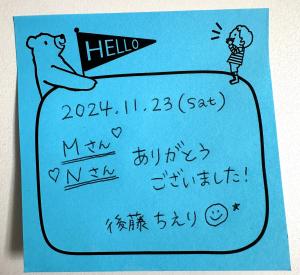 HELLO
2024.11.23(sat)
Mさん
Nさん
ありがとう
ございました!
後藤 ちえり